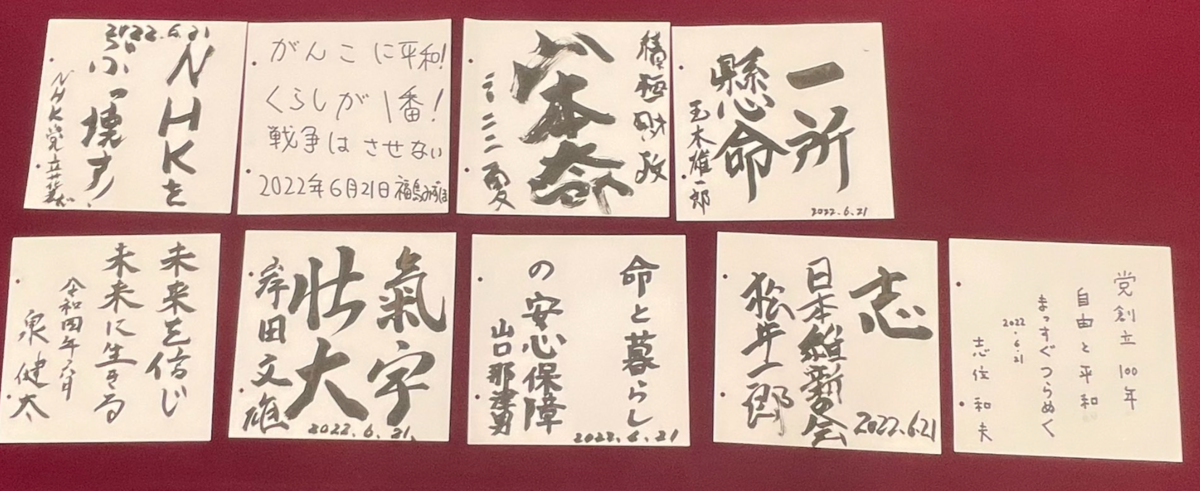 2022.6.21
NHKを
ぶっ壊す!
NHK党 立花孝志
がんこに平和!
くらしが1番!
戦争はさせない
2022年6月21日 福島みずほ
積極財政
山本太郎
二〇二二 夏
一所
懸命
玉木雄一郎
2022.6.21
未来を信じ
未来に生きる
令和四年六月
泉健太
氣宇
壮大
岸田文雄
2022.6.21
命と暮らし
の安心保障
山口那津男
2022.6.21
志
日本維新の会
松井一郎
2022.6.21
党創立 100年
自由と平和
まっすぐつらぬく
2022.6.21
志位和夫